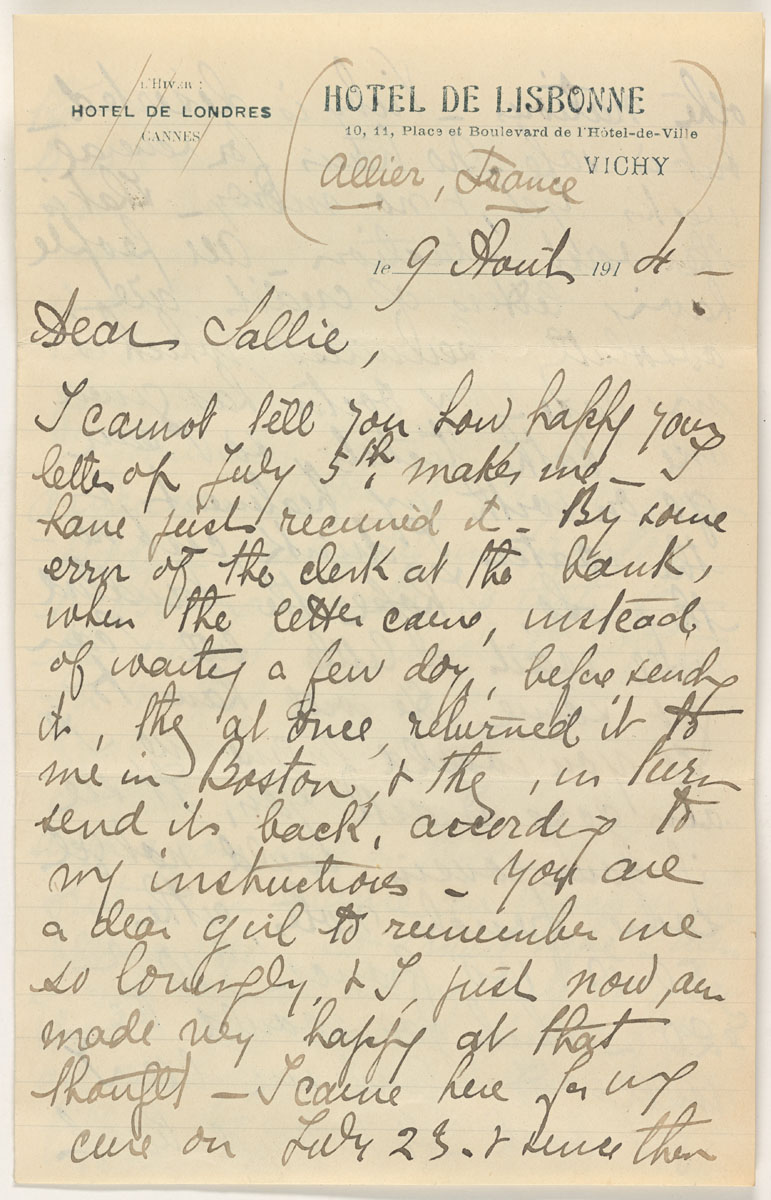 L'HIVER :
HOTEL DE LONDRES
CANNES
HOTEL DE LISBONNE
10, 11, Place et Boulevard de l'Hôtel-de-Ville
VICHY
Allier, France
le 9 Août 1914 -
Dear Sallie,
I cannot tell you how happy your
letter of July 5th, makes me - I
have just received it - By some
error of the clerk at the bank,
when the letter came, instead
of waiting a few days, before sending
it, they at once, returned it to
me in Boston, & they, in turn
send it back, according to
my instructions - You are
a dear girl to remember me
so lovingly, & I, just now, am
made very happy at that
thought - I came here for my
cure on July 23. & since then